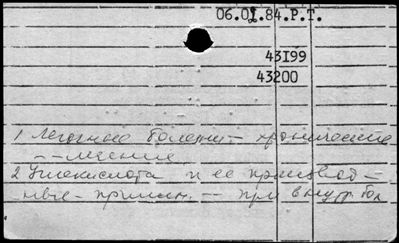 06.01.84.Р.Т.
43I99
43200
1 Легочные болезни – хронические
– – лечение
2 Уснекислота и ее производ –
ные – примен. – – при внутр бол